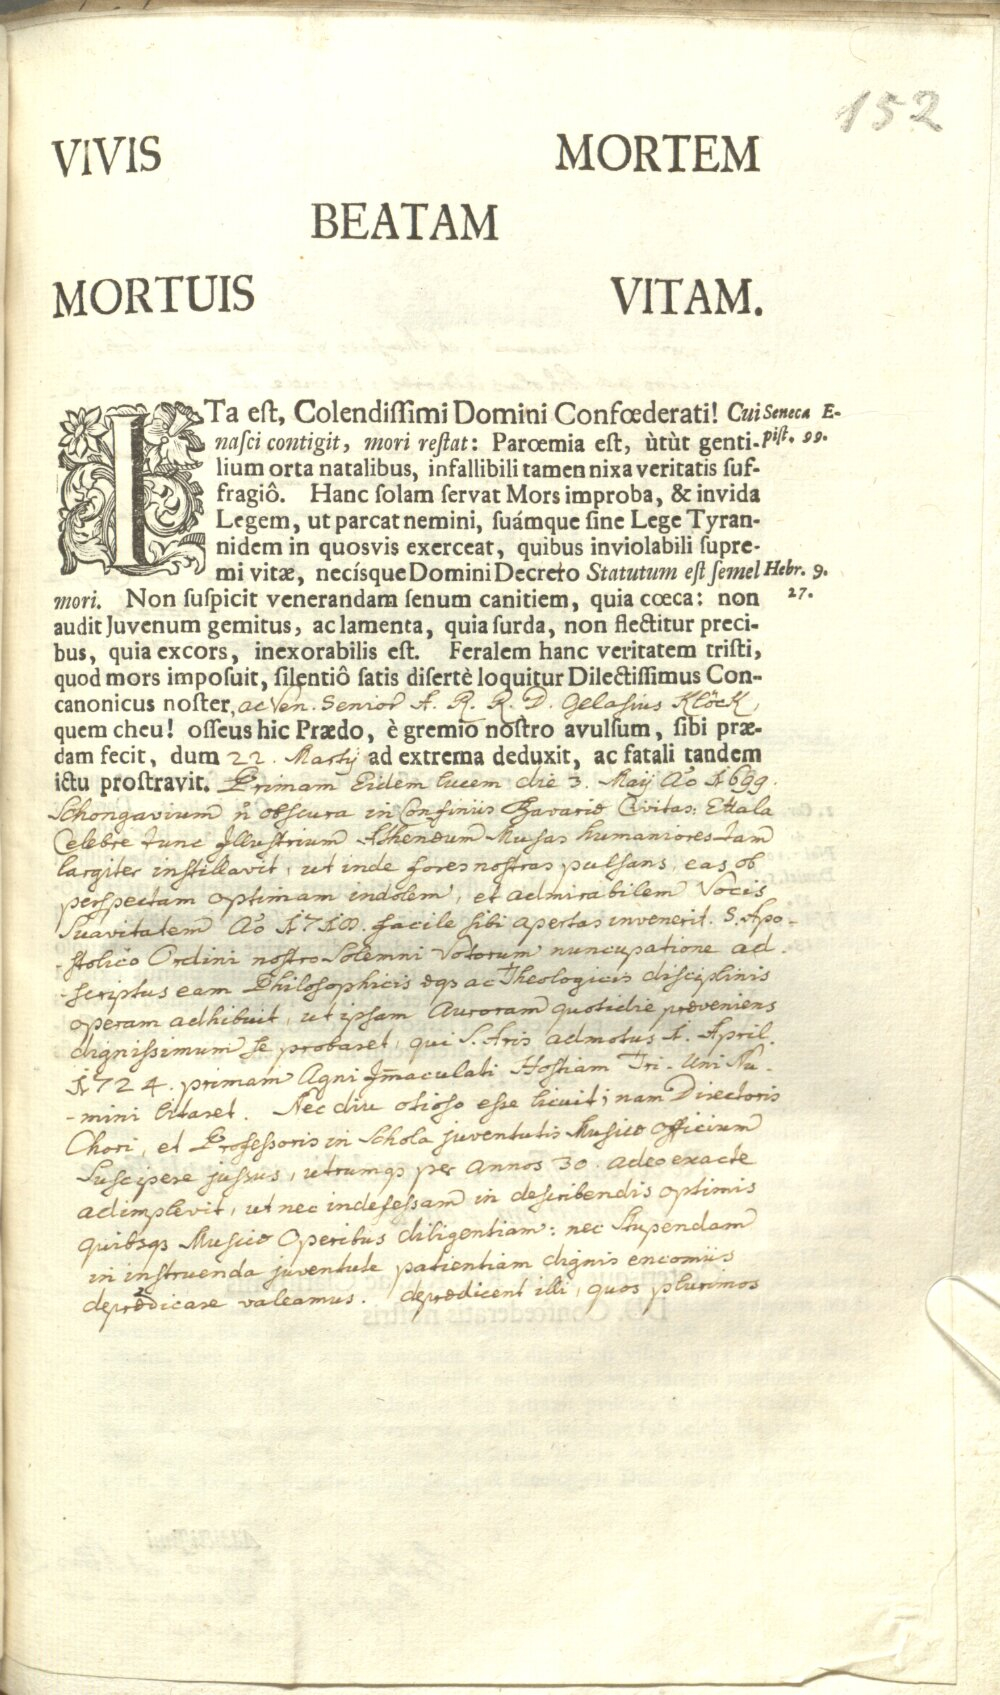 152
VIVIS MORTEM
BEATAM
MORTUIS VITAM.
ITa est, Colendissimi Domini Confœderati! Cui Seneca E-
nasci contigit, mori restat: Parœmia est, ùtùt genti- pist. 99.
lium orta natalibus, infallibili tamen nixa veritatis suf-
fragiô. Hanc solam servat Mors improba, & invida
Legem, ut parcat nemini, suámque sine Lege Tyran-
nidem in quosvis exerceat, quibus inviolabili supre-
mi vitæ, necísque Domini Decreto Statutum est semel Hebr. 9.
mori. Non suspicit venerandam senum canitiem, quia cœca: non 27.
audit Juvenum gemitus, ac lamenta, quia surda, non flectitur preci-
bus, quia excors, inexorabilis est. Feralem hanc veritatem tristi,
quod mors imposuit, silentiô satis disertè loquitur Dilectissimus Con-
canonicus noster, ac Ven. Senior A. R. R. D. Gelasius Klöck,
quem cheu! osseus hic Prædo, è gremio nostro avulsum, sibi præ-
dam fecit, dum 22. Martij ad extrema deduxit, ac fatali tandem
ictu prostravit. Primam Eidem lucem die 3. Maij Ao 1699.
Schongavium n̄ obscura in Confiniis Bavariæ Civitas: Ettala
Celebre tunc Illustrium Athenæum Musas humaniores tam̄
largiter instillavit, ut inde fores nostras pulsans, eas ob
perspectam optimam indolem, et admirabilem Vocis
Suavitatem Ao 1718. facile sibi apertas invenerit. S. Apo-
-stolico Ordini nostro Solemni Votorum nuncupatione ad-
-scriptus eam Philosophicis æqs ac Theologicis disciplinis
operam adhibuit, ut ipsam Auroram quotidie præveniens
dignissimum se probaret, qui S. Aris admotus 1. April.
1724. primam Agni Im̄aculati Hostiam Tri-Uni Nu-
-mini litaret. Nec diu otioso esse licuit; nam Directoris
Chori, et Professoris in Schola juventutis Musicæ officium
Suscipere jussus, utrumqs per annos 30. adeo exacte
adimplevit, ut nec indefessam in describendis optimis
quibsqs Musicæ Operibus diligentiam: nec Stupendam
in instruenda juventute patientiam dignis encomiis
deprædicare valeamus. deprædicent illi, quos plurimos